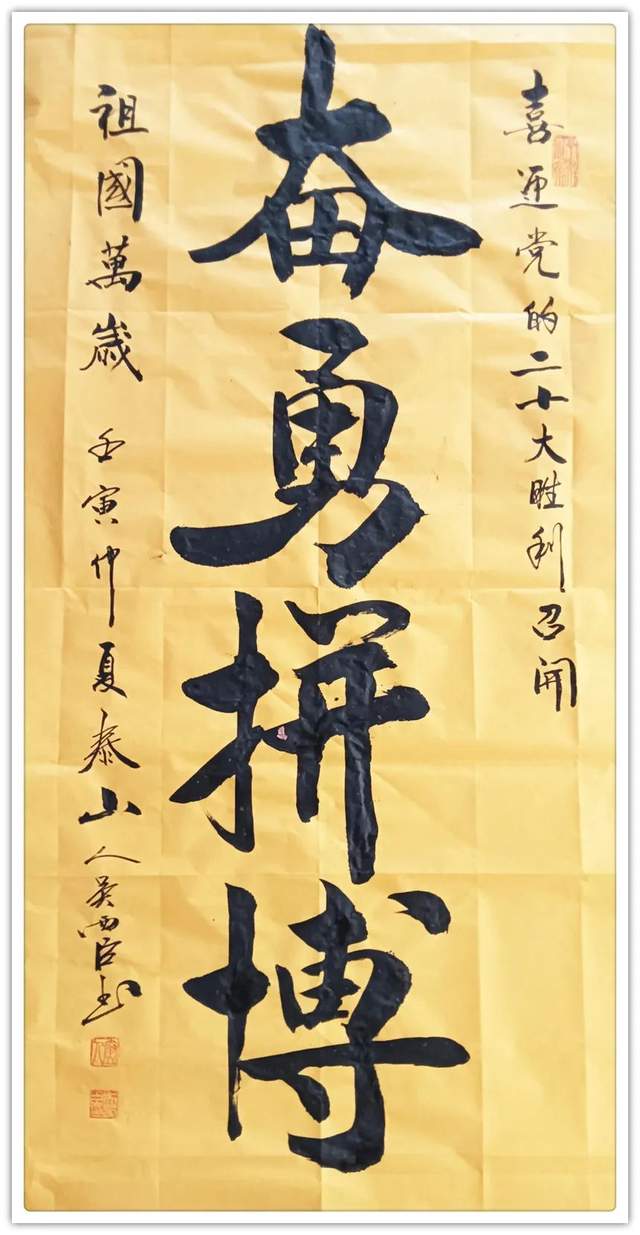 喜迎党的二十大胜利召開
奋勇拼博
祖國萬歲 壬寅仲夏泰山人吴西臣书